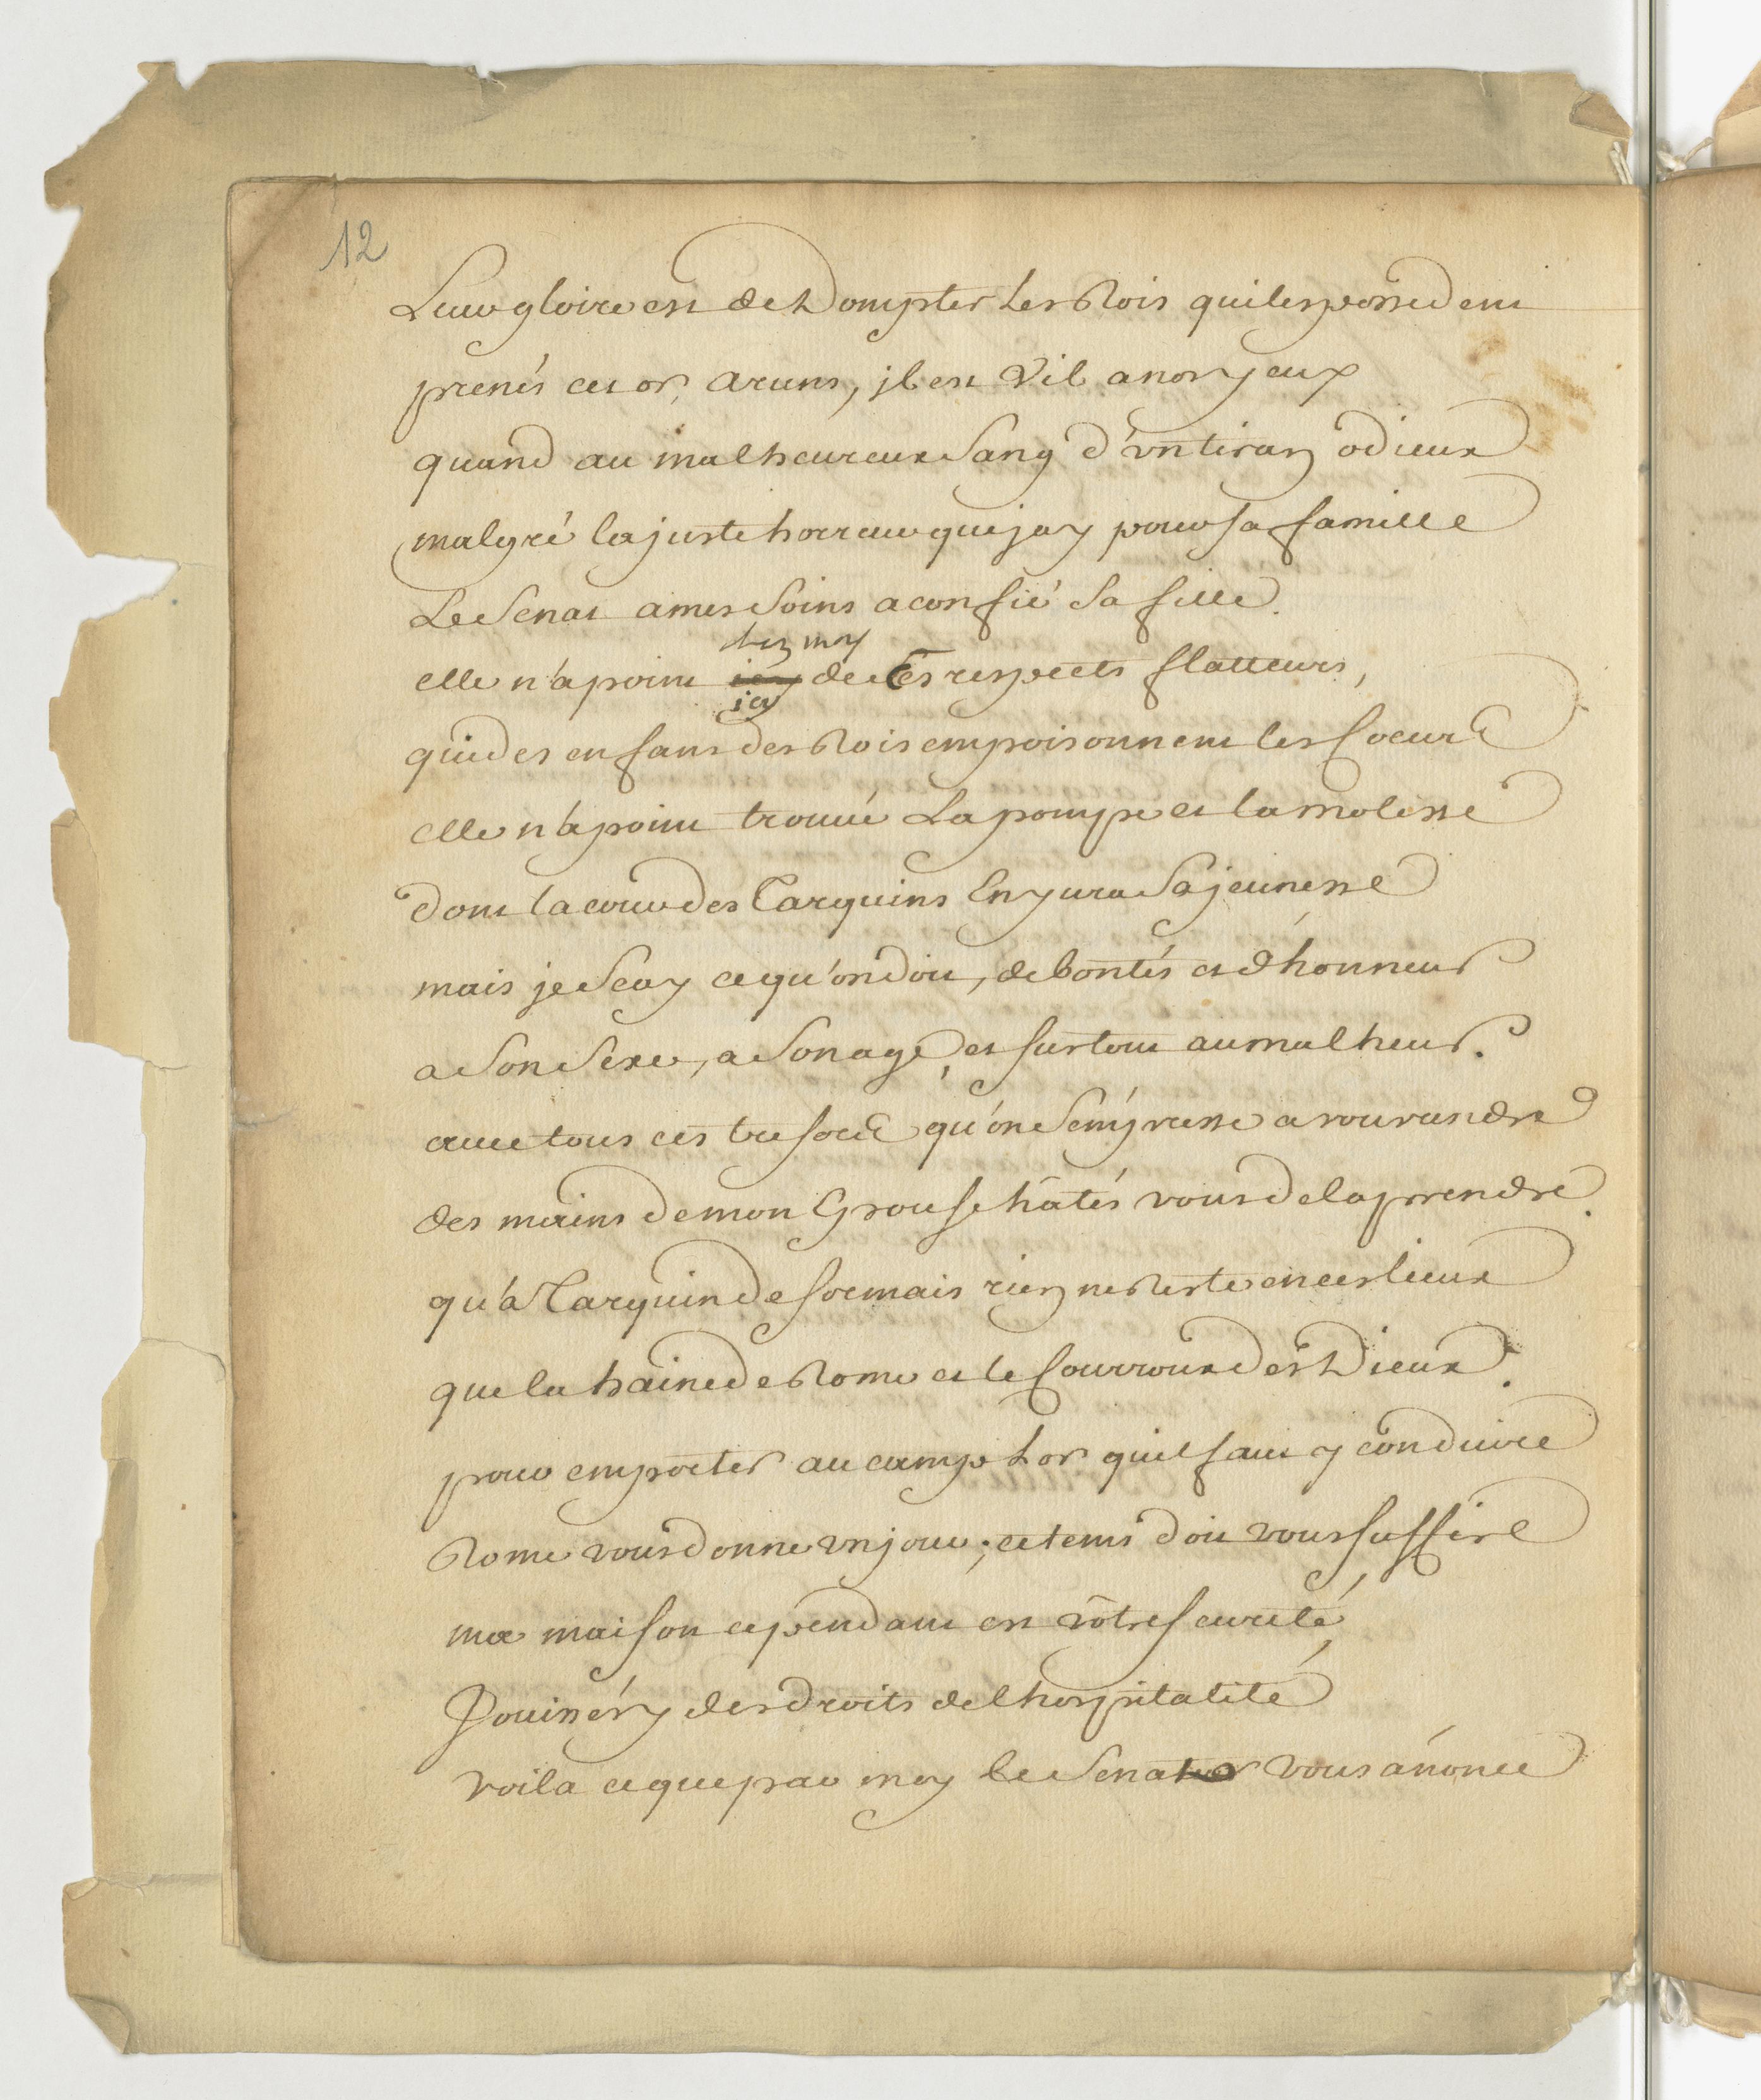 12
Leur gloire est de Dompter les Rois qui les possedent
prenés cet or, Aruns, jl est Vil a nos yeux
quand au malheureux Sang d'vn tiran odieux
malgré la juste horreur que jay pour sa famille
Le Senat a mes Soins a confié Sa fille.
chez moy
elle n'a point icy de ces respects flatteurs,
icy
qui des enfans des Rois empoisonnent les Coeurs
elle n'a point trouué La pompe et la molesse
dont la cour des Tarquins Enyura Sa jeunesse
mais je Scay ce qu'on doit, de bontés et d'honneur
a Son Sexe, a Son age, et surtout au malheur.
auec tous ces tresors qu'on S'empresse a vous rendre
des mains de mon Epouse hâtés vous de la prendre.
qu'a Tarquin desormais rien ne Reste en ces lieux
que la haine de Rome et le Courroux des Dieux.
pour emporter au camp Lor quil faut y conduire
Rome vous donne vn jour; ce tems doit vous suffire
ma maison cependant est vôtre seureté,
Jouissés y des droits de lhospitalité
voila ce que par moy le Senat vous anonce